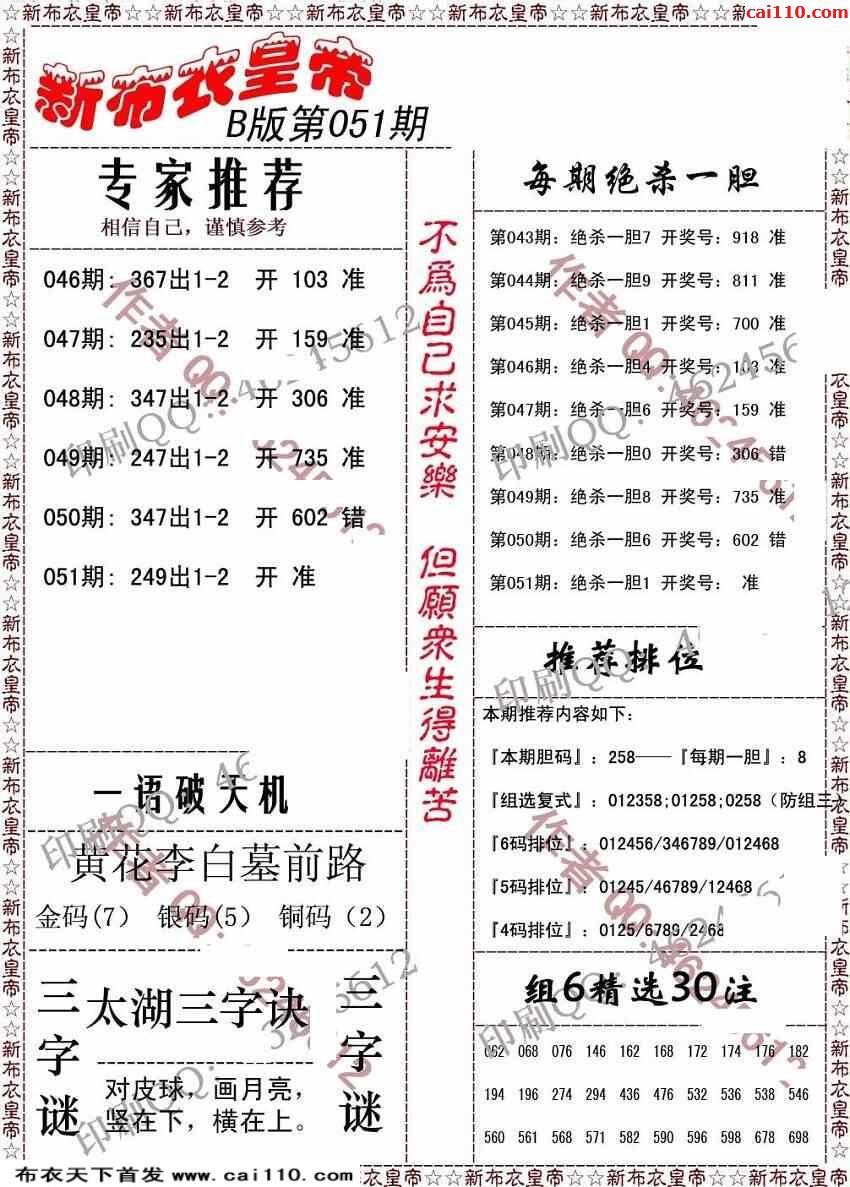 ☆☆新布衣皇帝☆☆新布衣皇帝☆☆新布衣皇帝☆☆新布衣皇帝☆☆新布衣皇帝☆☆新
cai110.com
新布衣皇帝
B版第051期
专家推荐
相信自己，谨慎参考
046期: 367出1-2 开 103 准
047期: 235出1-2 开 159 准
048期: 347出1-2 开 306 准
049期: 247出1-2 开 735 准
050期: 347出1-2 开 602 错
051期: 249出1-2 开 准
一语破天机
黄花李白墓前路
金码(7) 银码(5) 铜码（2）
三字谜
太湖三字诀
对皮球，画月亮，
竖在下，横在上。
三字谜
不為自己求安樂 但願衆生得離苦
每期绝杀一胆
第043期: 绝杀一胆7 开奖号: 918 准
第044期: 绝杀一胆9 开奖号: 811 准
第045期: 绝杀一胆1 开奖号: 700 准
第046期: 绝杀一胆4 开奖号: 103 准
第047期: 绝杀一胆6 开奖号: 159 准
第048期: 绝杀一胆0 开奖号: 306 错
第049期: 绝杀一胆8 开奖号: 735 准
第050期: 绝杀一胆6 开奖号: 602 错
第051期: 绝杀一胆1 开奖号: 准
推荐排位
本期推荐内容如下:
『本期胆码』: 258——『每期一胆』: 8
『组选复式』: 012358;01258;0258（防组三）
『6码排位』: 012456/346789/012468
『5码排位』: 01245/46789/12468
『4码排位』: 0125/6789/2468
组6精选30注
062 068 076 146 162 168 172 174 176 182
194 196 274 294 436 476 532 536 538 546
560 561 568 571 582 590 596 598 678 698
布衣天下首发 www.cai110.com
衣皇帝☆☆新布衣皇帝☆☆新布衣皇帝☆☆新布衣皇帝☆☆